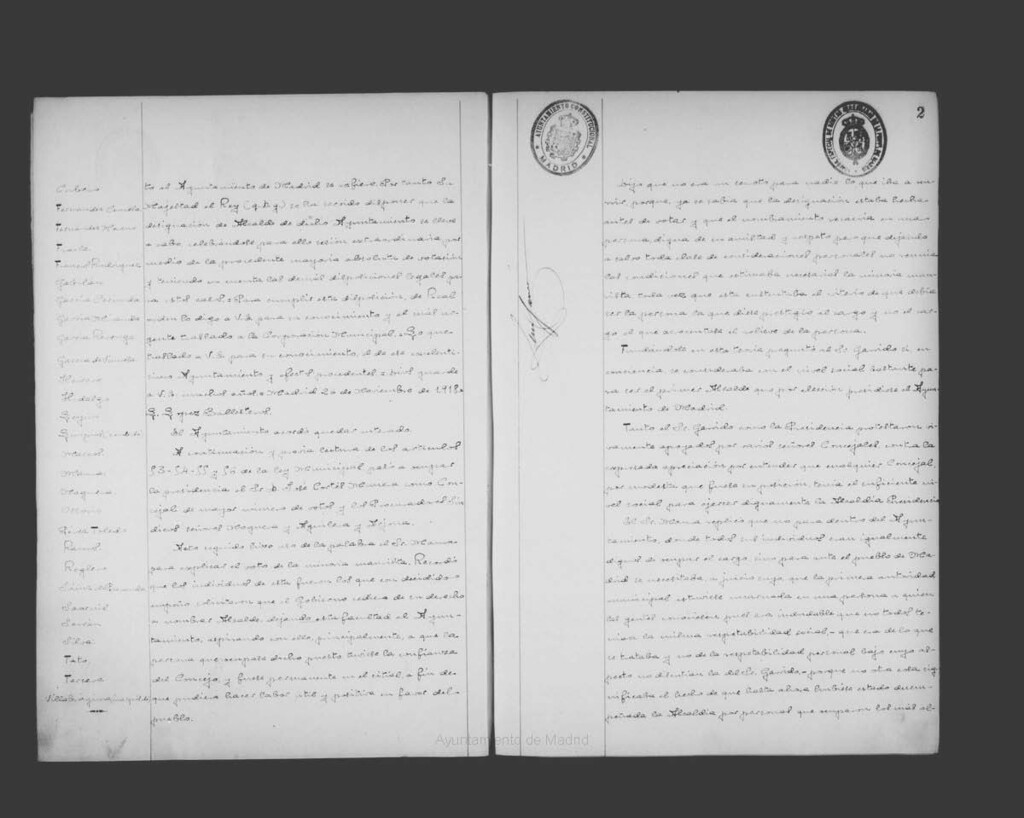 Cubero
Fernández Cancela
Fernández Morales
Fraile
Francos Rodríguez
Gabilán
García Miranda
García Revenga
Hidalgo
Maura
Noguera
Ramos
Reglero
Saornil
Serrán
Silva
Tato
Tercero
to el Ayuntamiento de Madrid se refiere. Por tanto Su
Majestad el Rey (q.D.g.) se ha servido disponer que la
designación de Alcalde de dicho Ayuntamiento se lleve
a cabo celebrándose para ello sesión extraordinaria, por
medio de la procedente mayoría absoluta de votación
y teniendo en cuenta las demás disposiciones legales pa-
ra estos casos. Para cumplir esta disposición, de Real
orden lo digo a V.E. para su conocimiento y el más ur-
gente traslado a la Corporación Municipal. Lo que
traslado a V.E. para su conocimiento, el de ese excelentí-
simo Ayuntamiento y efectos procedentes. Dios guarde
a V.E. muchos años. Madrid 20 de Noviembre de 1918.
El Ayuntamiento acordó quedar enterado.
A continuación y previa lectura de los artículos
53-54-55 y 56 de la ley Municipal pasó a ocupar
la presidencia el Sr. D. José Cortés Munera como Conce-
jal de mayor número de votos y los Procuradores Sín-
dicos señores Noguera y Aguilera y Arjona.
Acto seguido hizo uso de la palabra el Sr. Maura
para explicar el voto de la minoría maurista. Recordó
que los individuos de esta fueron los que con decidido
empeño solicitaron que el Gobierno cediera de su derecho
a nombrar Alcalde, dejando esta facultad al Ayun-
tamiento, aspirando con ello, principalmente, a que la
persona que ocupase dicho puesto tuviese la confianza
del Concejo y fuese permanente en el sitial, a fin de
que pudiera hacer labor útil y positiva en favor del
pueblo.
AYUNTAMIENTO CONSTITUCIONAL
MADRID
2
Dijo que no era un secreto para nadie lo que iba a ocu-
rrir, porque, ya se sabía que la designación estaba hecha
antes de votar y que el nombramiento recaería en una
persona digna de su amistad y respeto pero que dejando
a salvo toda clase de consideraciones personales no reunía
las condiciones que estimaba necesarias la minoría mau-
rista toda vez que esta sustentaba el criterio de que debía
ser la persona la que diese prestigio al cargo y no el car-
go el que acrecentase el relieve de la persona.
Fundándose en esta teoría preguntó al Sr. Garrido si, en
conciencia se consideraba con el nivel social bastante pa-
ra ser el primer Alcalde que por elección presidiese el Ayun-
tamiento de Madrid.
Tanto el Sr. Garrido como la Presidencia protestaron vi-
vamente apoyados por varios señores Concejales contra la
expresada apreciación por entender que cualquier Concejal,
por modesta que fuese su posición, tenía el suficiente ni-
vel social para ejercer dignamente la Alcaldía Presidencia
El Sr. Maura replicó que no para dentro del Ayun-
tamiento, donde todos sus individuos eran igualmente
dignos de ocupar el cargo sino para ante el pueblo de Ma-
drid se necesitaba, a juicio suyo que la primera autoridad
municipal estuviese encarnada en una persona a quien
las gentes conociesen pues era indudable que no todos te-
nían la misma respetabilidad social,- que era de lo que
se trataba y no de la respetabilidad personal bajo cuyo as-
pecto no discutían la del Sr. Garrido- porque no otra cosa sig-
nificaba el hecho de que hasta ahora hubiese estado desem-
peñada la Alcaldía por personas que ocuparon los más al-
Ayuntamiento de Madrid